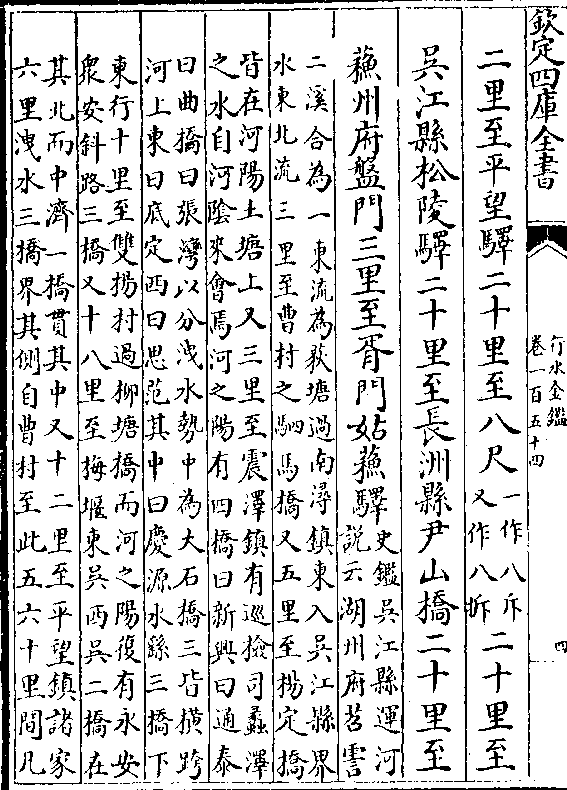 欽定四庫全書
行水金鑑
卷一百五十四
四
二里至平望驛二十里至八尺一作八斥
又作八坼二十里至
吳江縣松陵驛二十里至長洲縣尹山橋二十里至
蘇州府盤門三里至胥門姑蘇驛史鑑吳江縣運河
說云湖州府苕霅
二溪合為一東流為荻塘過南潯鎮東入吳江縣界
水東北流三里至曹村之駟馬橋又五里至楊定橋
皆在河陽土塘上又三里至震澤鎮有巡檢司蠡澤
之水自河陰來會焉河之陽有四橋曰新興曰通泰
曰曲橋曰張灣以分洩水勢中為大石橋三皆橫跨
河上東曰底定西曰思范其中曰慶源水繇三橋下
東行十里至雙揚村過柳塘橋而河之陽復有永安
衆安斜路三橋又十八里至梅堰東吳西吳二橋在
其北而中濟一橋貫其中又十二里至平望鎮諸家
六里洩水三橋界其側自曹村至此五六十里間凡